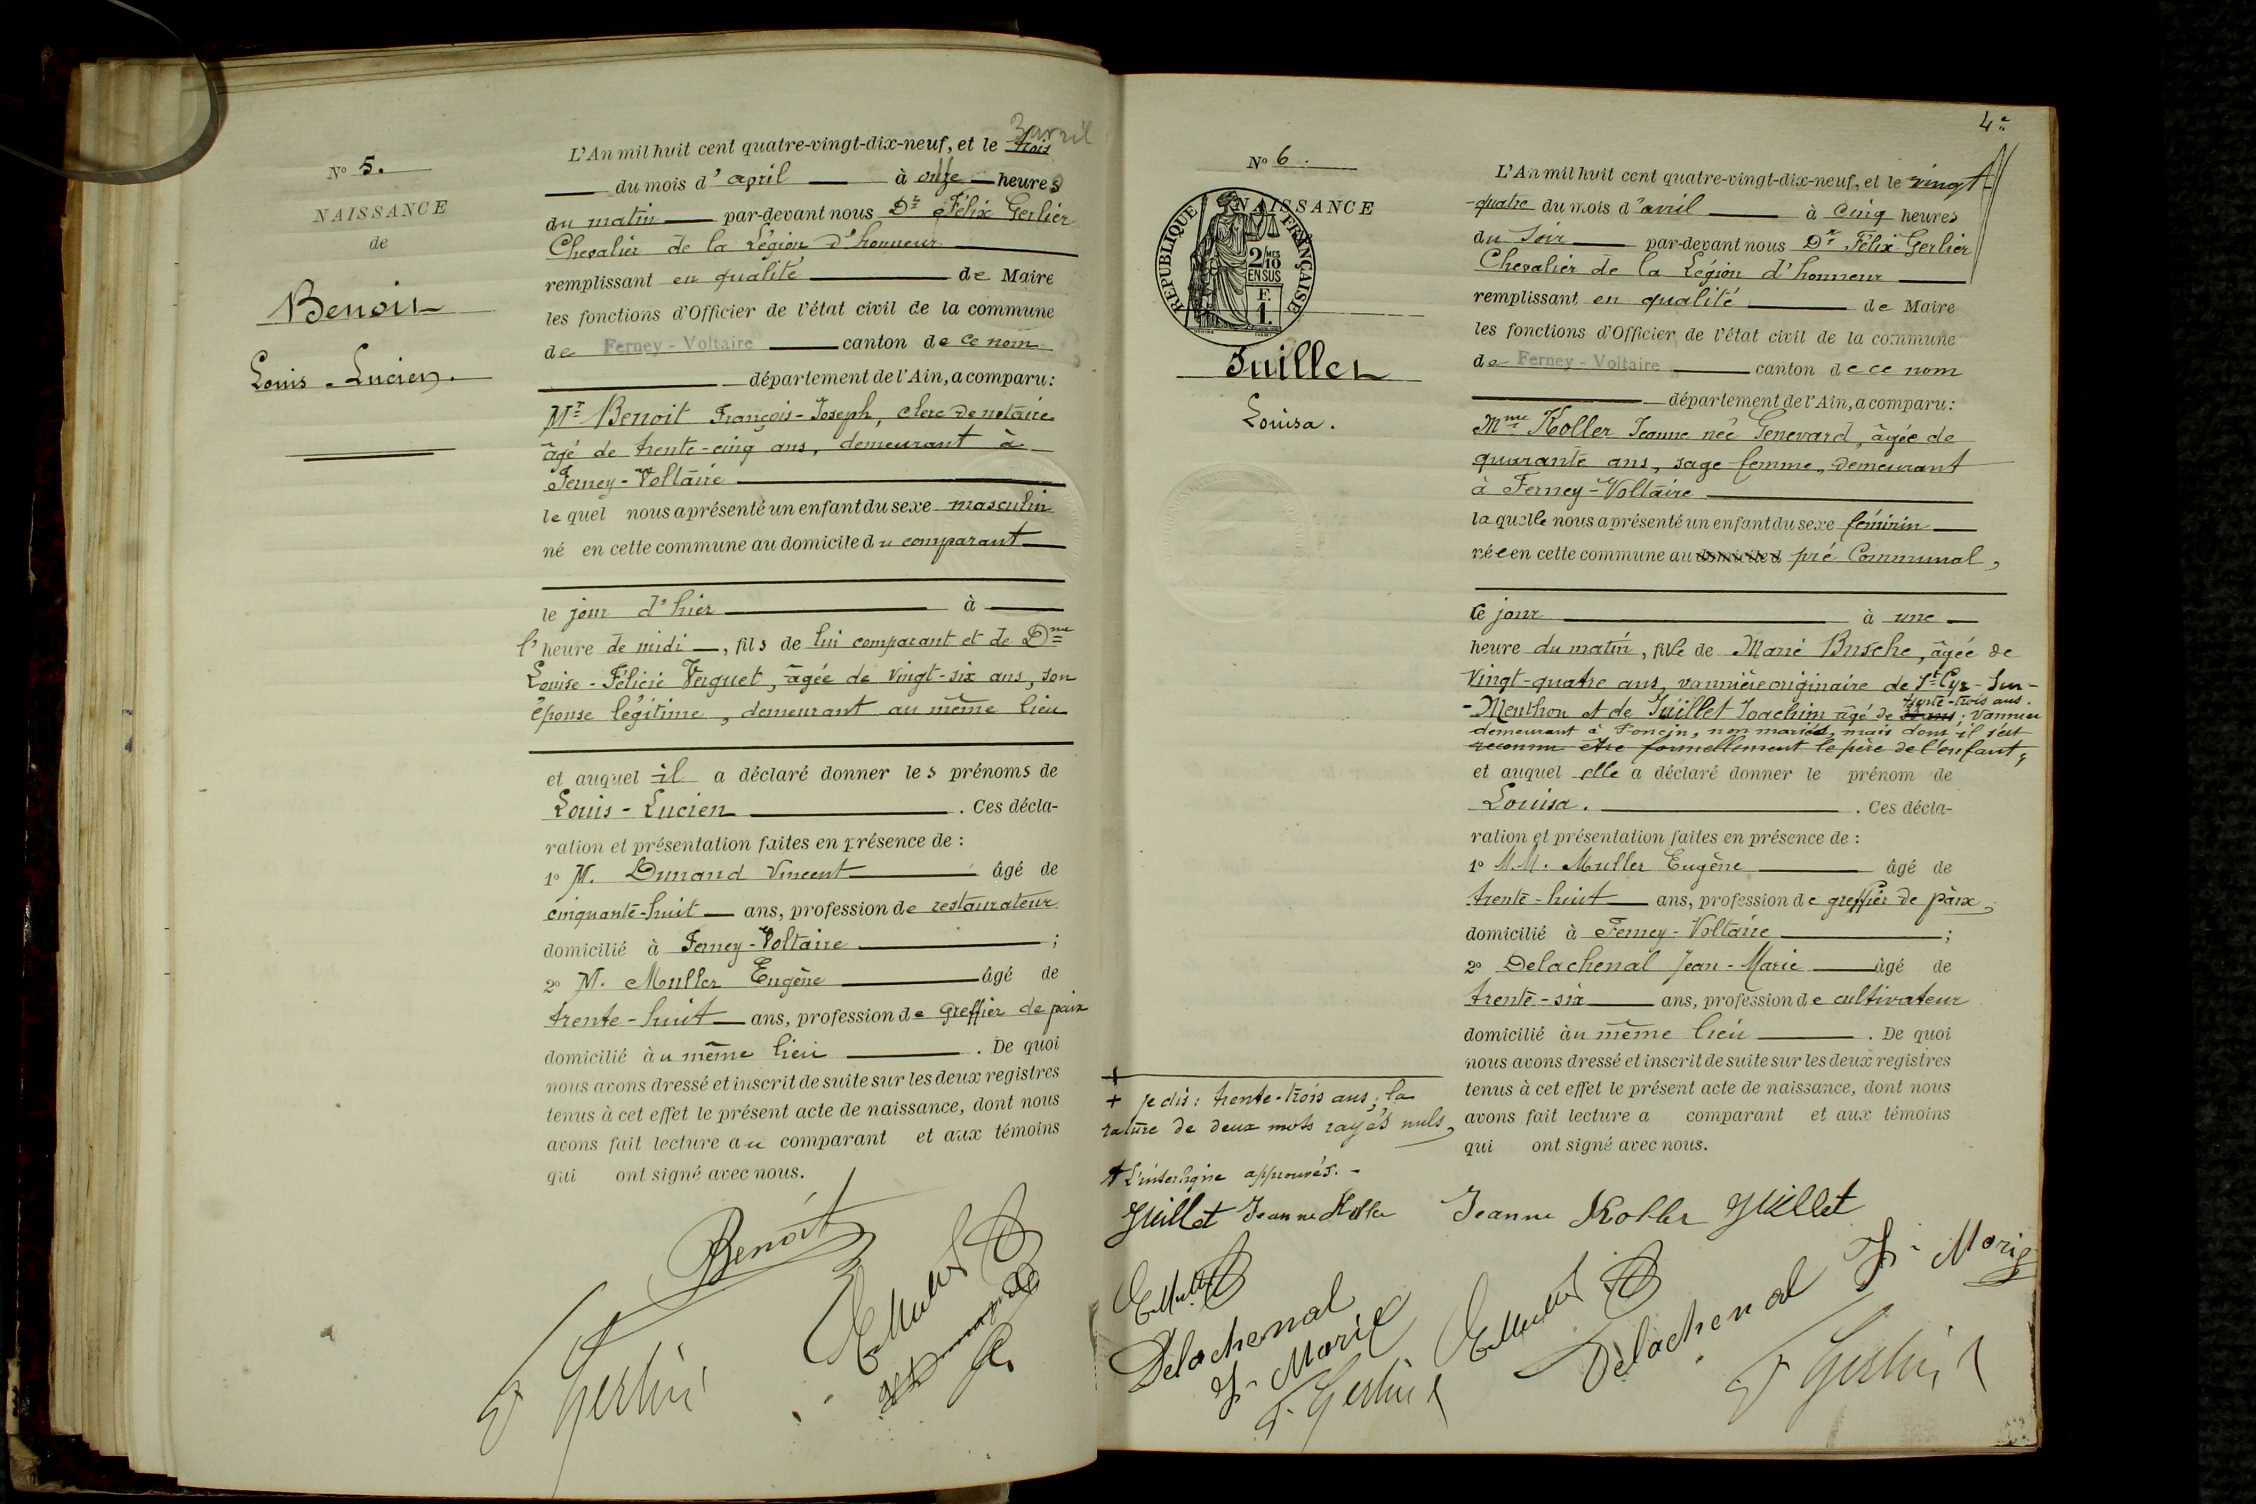 N° 5.
NAISSANCE
de
Benoit
Louis-Lucien.
3 avril
L'An mil huit cent quatre-vingt-dix-neuf, et le trois
du mois d'april à onze heures
du matin par-devant nous Dr Félix Gerlier
Chevalier de la Légion d'honneur
remplissant en qualité de Maire
les fonctions d'Officier de l'état civil de la commune
de Ferney-Voltaire canton de ce nom
département de l'Ain, a comparu:
Mr Benoit François-Joseph, clerc de notaire
âgé de trente-cinq ans, demeurant à
Ferney-Voltaire
le quel nous a présenté un enfant du sexe masculin
né en cette commune au domicile du comparant
le jour d'hier à
l'heure de midi, fils de lui comparant et de Dme
Louise-Félicie Verguet, âgée de vingt-six ans, son
épouse légitime, demeurant au même lieu
et auquel il a déclaré donner les prénoms de
Louis-Lucien. Ces décla-
ration et présentation faites en présence de :
1° M. Dunand Vincent âgé de
cinquante-huit ans, profession de restaurateur
domicilié à Ferney-Voltaire ;
2° M. Muller Eugène âgé de
trente-huit ans, profession de greffier de paix
domicilié au même lieu. De quoi
nous avons dressé et inscrit de suite sur les deux registres
tenus à cet effet le présent acte de naissance, dont nous
avons fait lecture au comparant et aux témoins
qui ont signé avec nous.
Benoit
E Muller
F Gerlier
4e
N° 6.
NAISSANCE
REPUBLIQUE FRANÇAISE
2/10 MES
EN SUS
F.
1.
Juillet
Louisa.
L'An mil huit cent quatre-vingt-dix-neuf, et le vingt-
-quatre du mois d'avril à cinq heures
du soir par-devant nous Dr Félix Gerlier
Chevalier de la Légion d'honneur
remplissant en qualité de Maire
les fonctions d'Officier de l'état civil de la commune
de Ferney-Voltaire canton de ce nom
département de l'Ain, a comparu:
Mme Koller Jeanne née Genevard, âgée de
quarante ans, sage femme, demeurant
à Ferney-Voltaire
la quelle nous a présenté un enfant du sexe féminin
née en cette commune au domicile d pré Communal,
ce jour à une
heure du matin, fille de Marie Busche, âgée de
vingt-quatre ans, vannière originaire de St Cyr-Sur-
trente-trois ans.
-Menthon et de Juillet Joachim âgé de 33 ans; vannier
demeurant à Poncin, non mariés, mais dont il s'est
reconnu être formellement le père de l'enfant,
et auquel elle a déclaré donner le prénom de
Louisa. Ces décla-
ration et présentation faites en présence de :
1° M.M. Muller Eugène âgé de
trente-huit ans, profession de greffier de paix,
domicilié à Ferney-Voltaire ;
2° Delachenal Jean-Marie âgé de
trente-six ans, profession de cultivateur
domicilié au même lieu. De quoi
nous avons dressé et inscrit de suite sur les deux registres
tenus à cet effet le présent acte de naissance, dont nous
avons fait lecture a comparant et aux témoins
qui ont signé avec nous.
+ je dis: trente-trois ans; la
rature de deux mots rayés nuls,
+ L'interligne approuvés.-
Juillet Jeanne Koller
E Muller
Delachenal
J- Marie
F. Gerlier
Jeanne Koller Juillet
E Muller
Delachenal J- Marie
F Gerlier